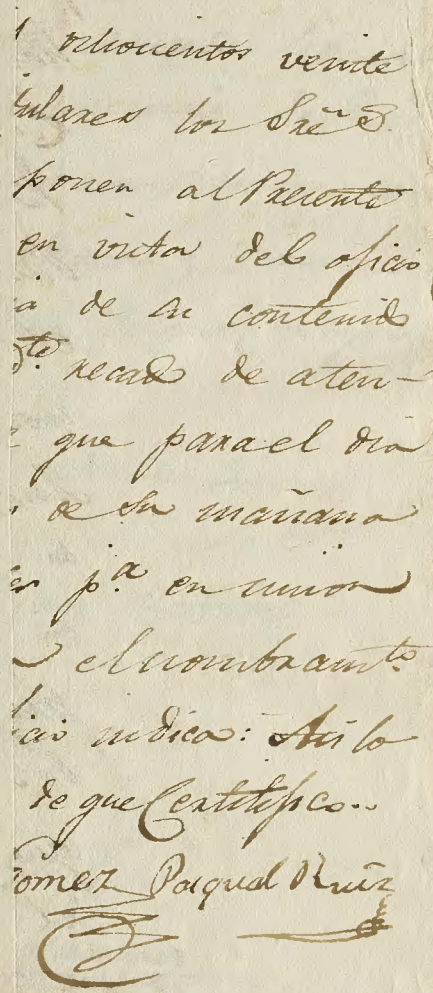 ochocientos veinte
tulares los Sreˢ.
ponen al Presente
en vista del oficio
a de su contenido
recado de aten-
que para el dia
de su mañana
pª en union
el nombramto.
cio indica: Asi lo
de que Certifico..
Gomez Pasqual Ruiz